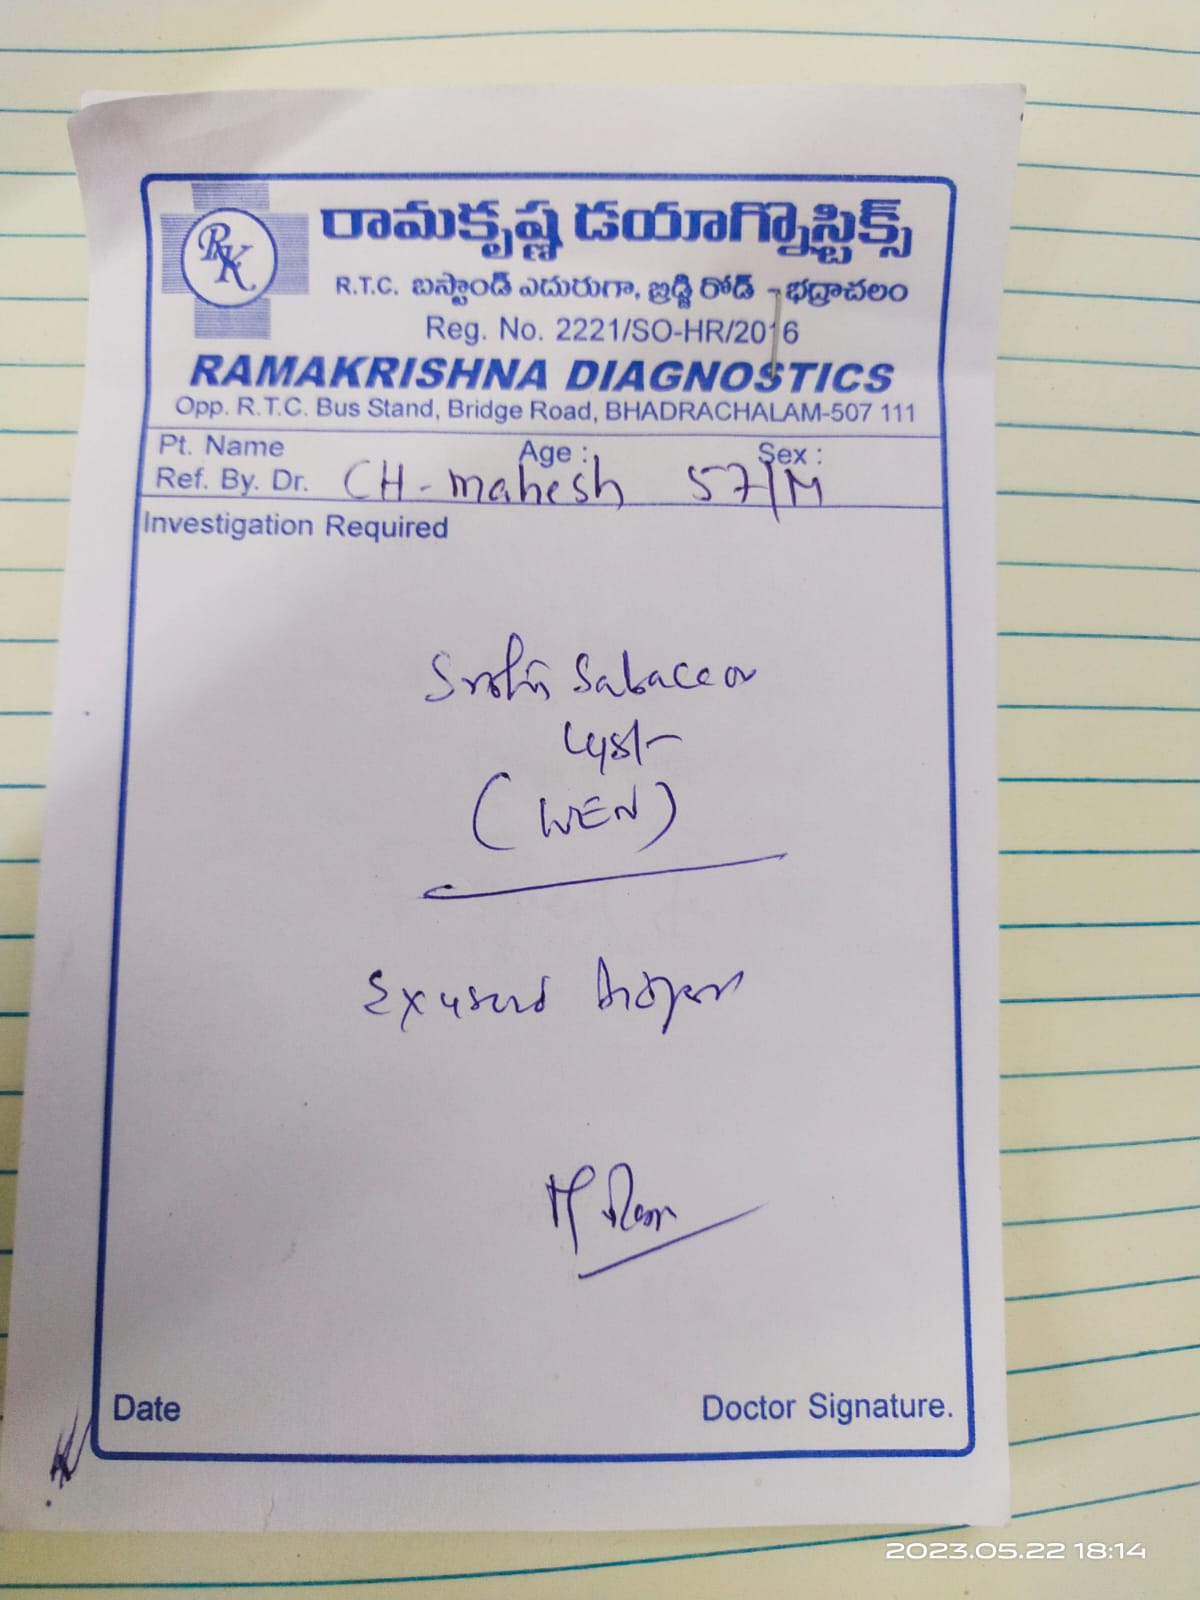 RK
రామకృష్ణ డయాగ్నొస్టిక్స్
R.T.C. బస్టాండ్ ఎదురుగా, బ్రిడ్జి రోడ్ - భద్రాచలం
Reg. No. 2221/SO-HR/2016
RAMAKRISHNA DIAGNOSTICS
Opp. R.T.C. Bus Stand, Bridge Road, BHADRACHALAM-507 111
Pt. Name Age : Sex :
Ref. By. Dr. CH - mahesh 57/M
Investigation Required
Sabaceor
Cyst
(WEN)
Date Doctor Signature.
2023.05.22 18:14